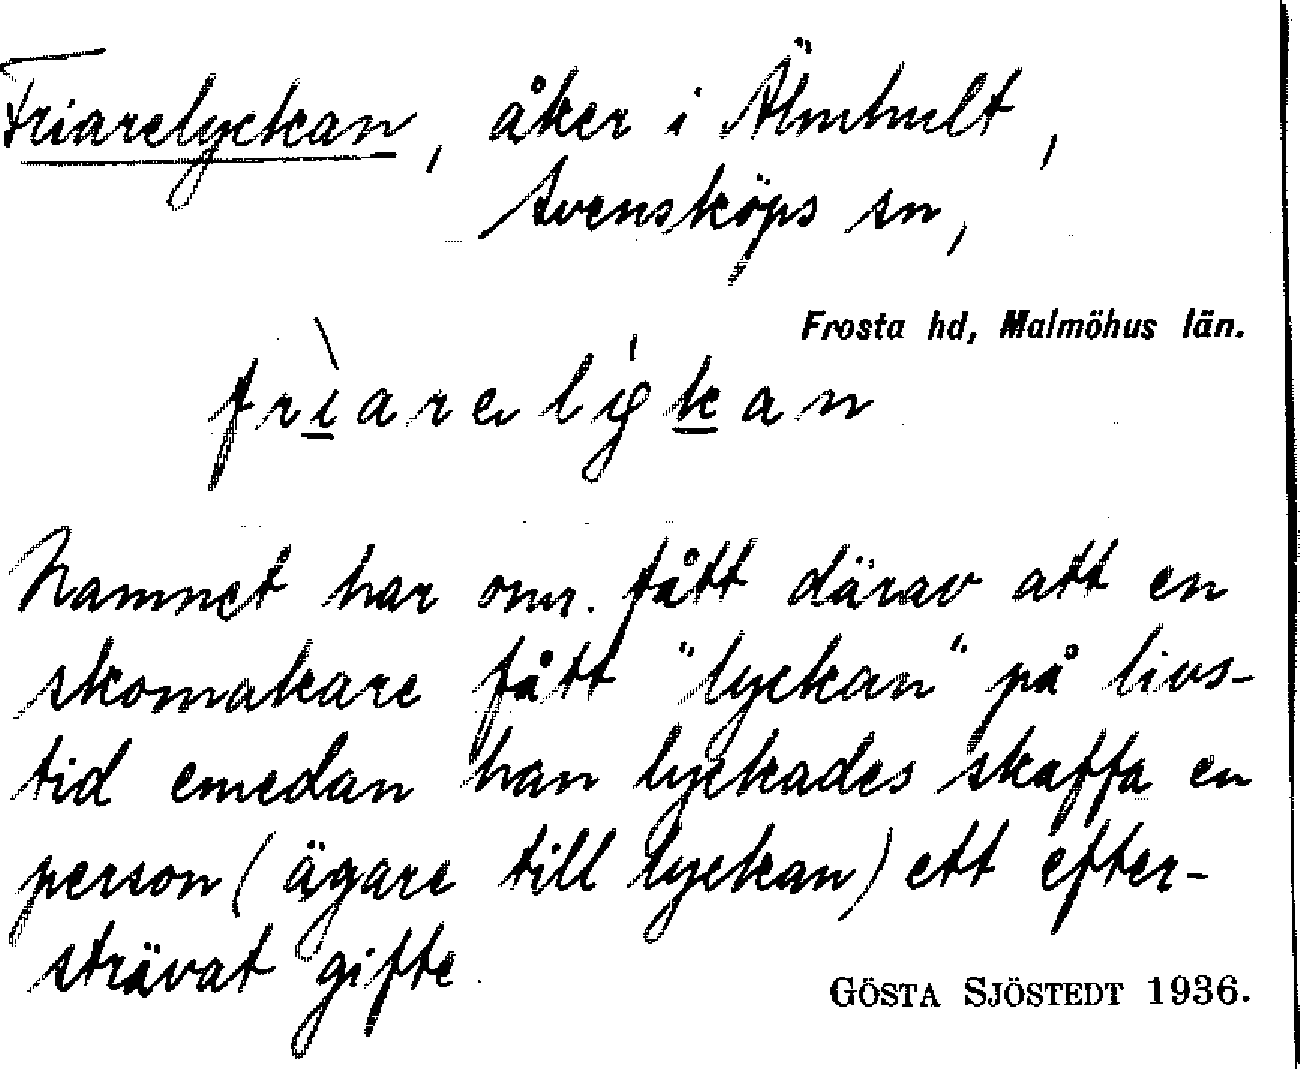 Friarelyckan, åker i Älmhult,
Svensköps sn,
Frosta hd, Malmöhus län.
frìarelýkan
Namnet har den fått därav att en
skomakare fått "lyckan" på livs-
tid emedan han lyckades skaffa en
person (ägare till lyckan) ett efter-
strävat gifte.
GÖSTA SJÖSTEDT 1936.